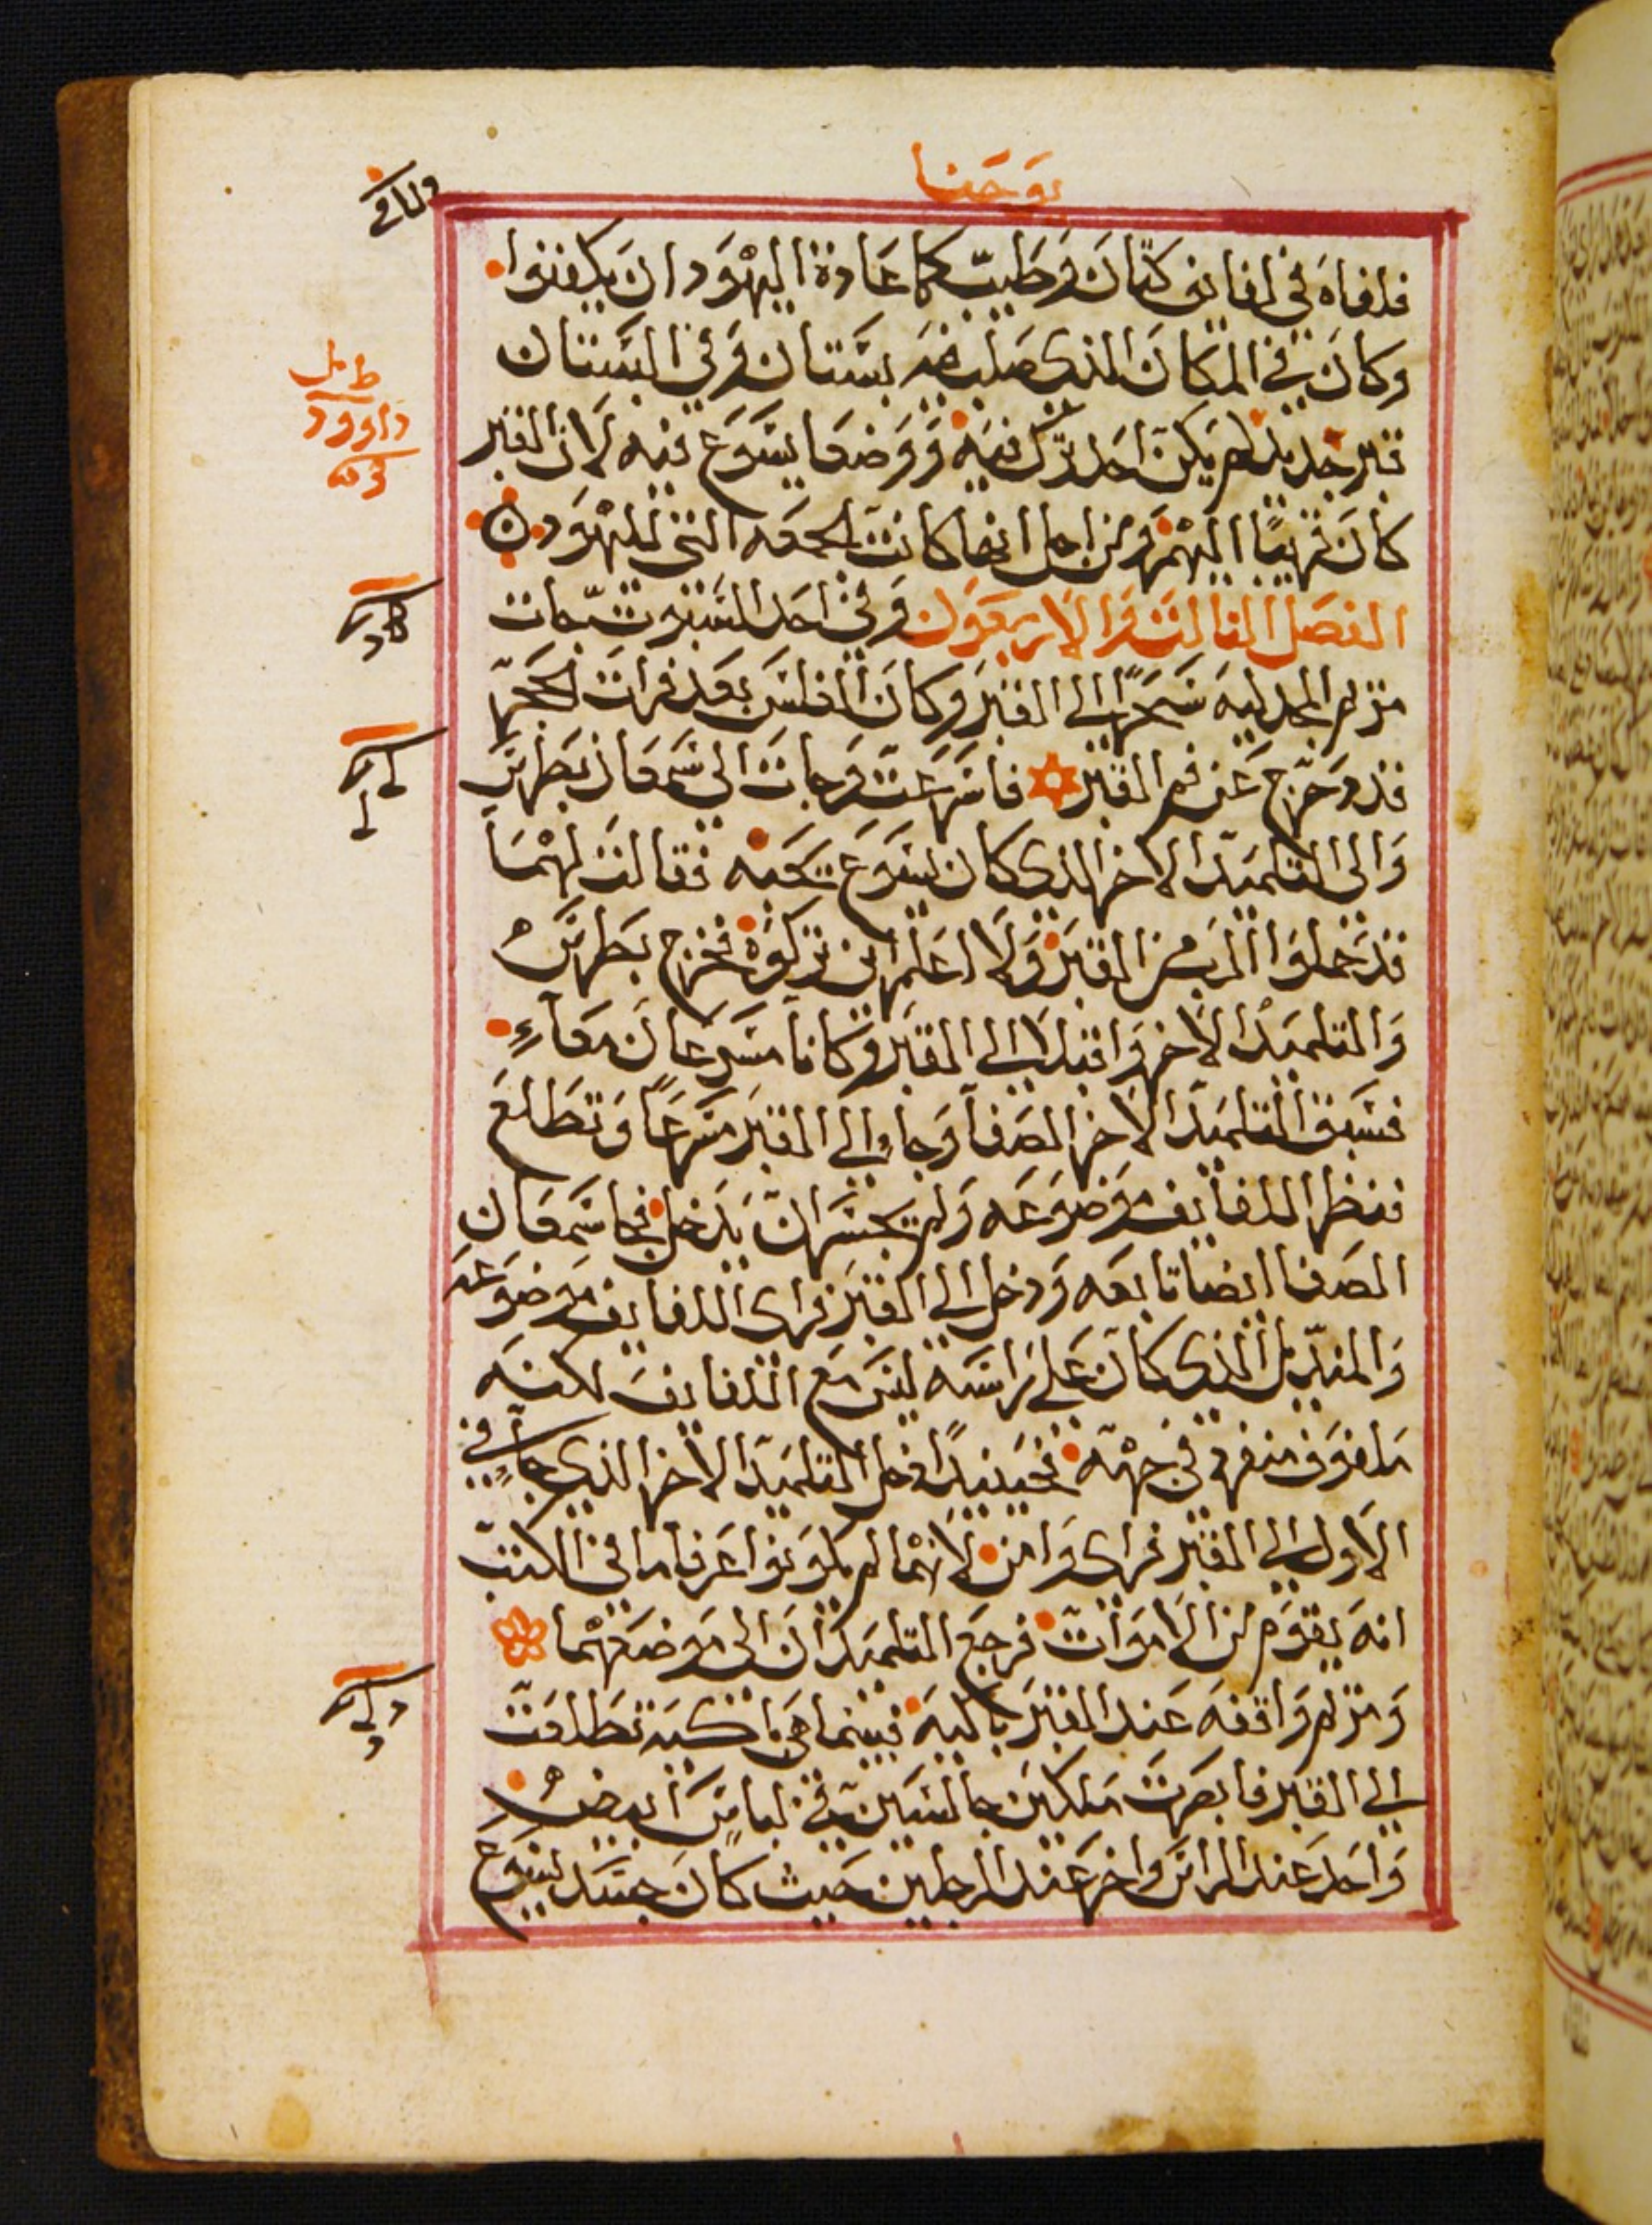 يوحنا
فلفاه في لفايف كتان وطيب كما عادة اليهود ان يكفنوا
وكان في المكان الذي صلب فيه بستان وفي البستان
قبر جديد لم يكن احد ترك فيه ووضعا يسوع فيه لان القبر
كان قريبا اليهم ومن اجل انها كانت الجمعه التي لليهود
الفصل الثالث والاربعون وفي احد السبوت جات
مريم المجدليه سحرا الي القبر وكان الغلس بعد فرات الحجر
قد دحرج عن فم القبر فاسرعت وجات الي سمعان بطرس
والى التلميد الاخر الذي كان يسوع يحبه فقالت لهما
قد حملوا الرب من القبر ولا اعلم اين تركوه فخرج بطرس
والتلميد الاخر واقبلا الي القبر وكانا مسرعان معا
فسبق التلميد الاخر الصفا وجا الي القبر مسرعا وتطلع
فنظر اللفايف موضوعه ولم يجسر ان يدخل فجا سمعان
الصفا ايضا تابعه ودخل الي القبر فراى اللفايف موضوعه
والمنديل الذي كان علي راسه ليس مع اللفايف لكنه
ملفوف منفرد في جهة فحينيد دخل التلميد الاخر الذي جا في
الاول الي القبر فراى وامن لانهما لم يكونوا عرفا ما في الكتب
انه يقوم من الاموات فرجع التلميدان الى موضعهما
ومريم واقفه عند القبر باكيه فبينما هي باكيه تطلعت
الي القبر فابصرت ملكين جالسين في لباس ابيض
واحد عند الراس واخر عند الرجلين حيث كان جسد يسوع
داوود